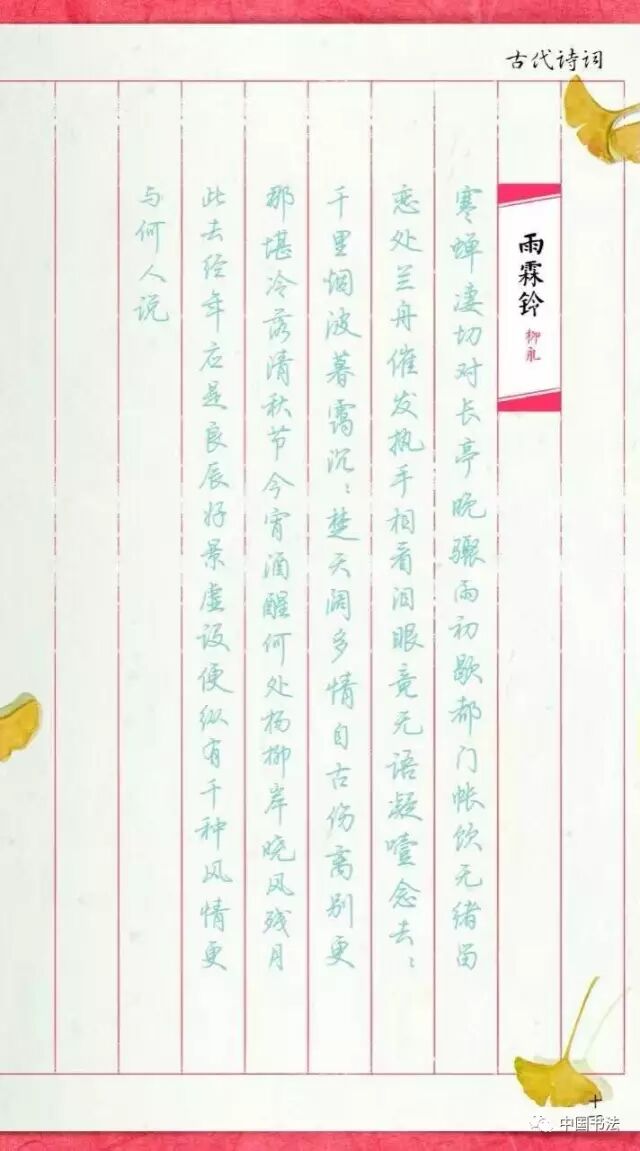 古代诗词
雨霖铃
柳永
寒蝉凄切对长亭晚骤雨初歇都门帐饮无绪留
恋处兰舟催发执手相看泪眼竟无语凝噎念去：
千里烟波暮霭沉：楚天阔多情自古伤离别更
那堪冷落清秋节今宵酒醒何处杨柳岸晓风残月
此去经年应是良辰好景虚设便纵有千种风情更
与何人说
十
中国书法